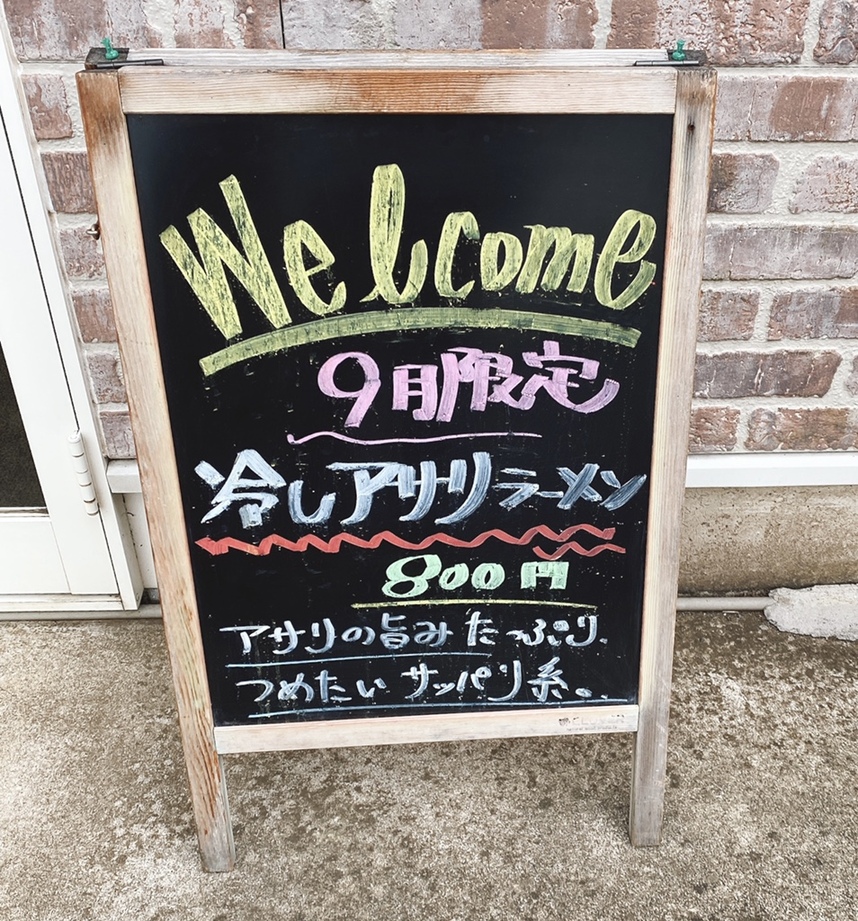 Welcome
9月限定
冷しアサリラーメン
800円
アサリの旨みたっぷり、
つめたいサッパリ系。